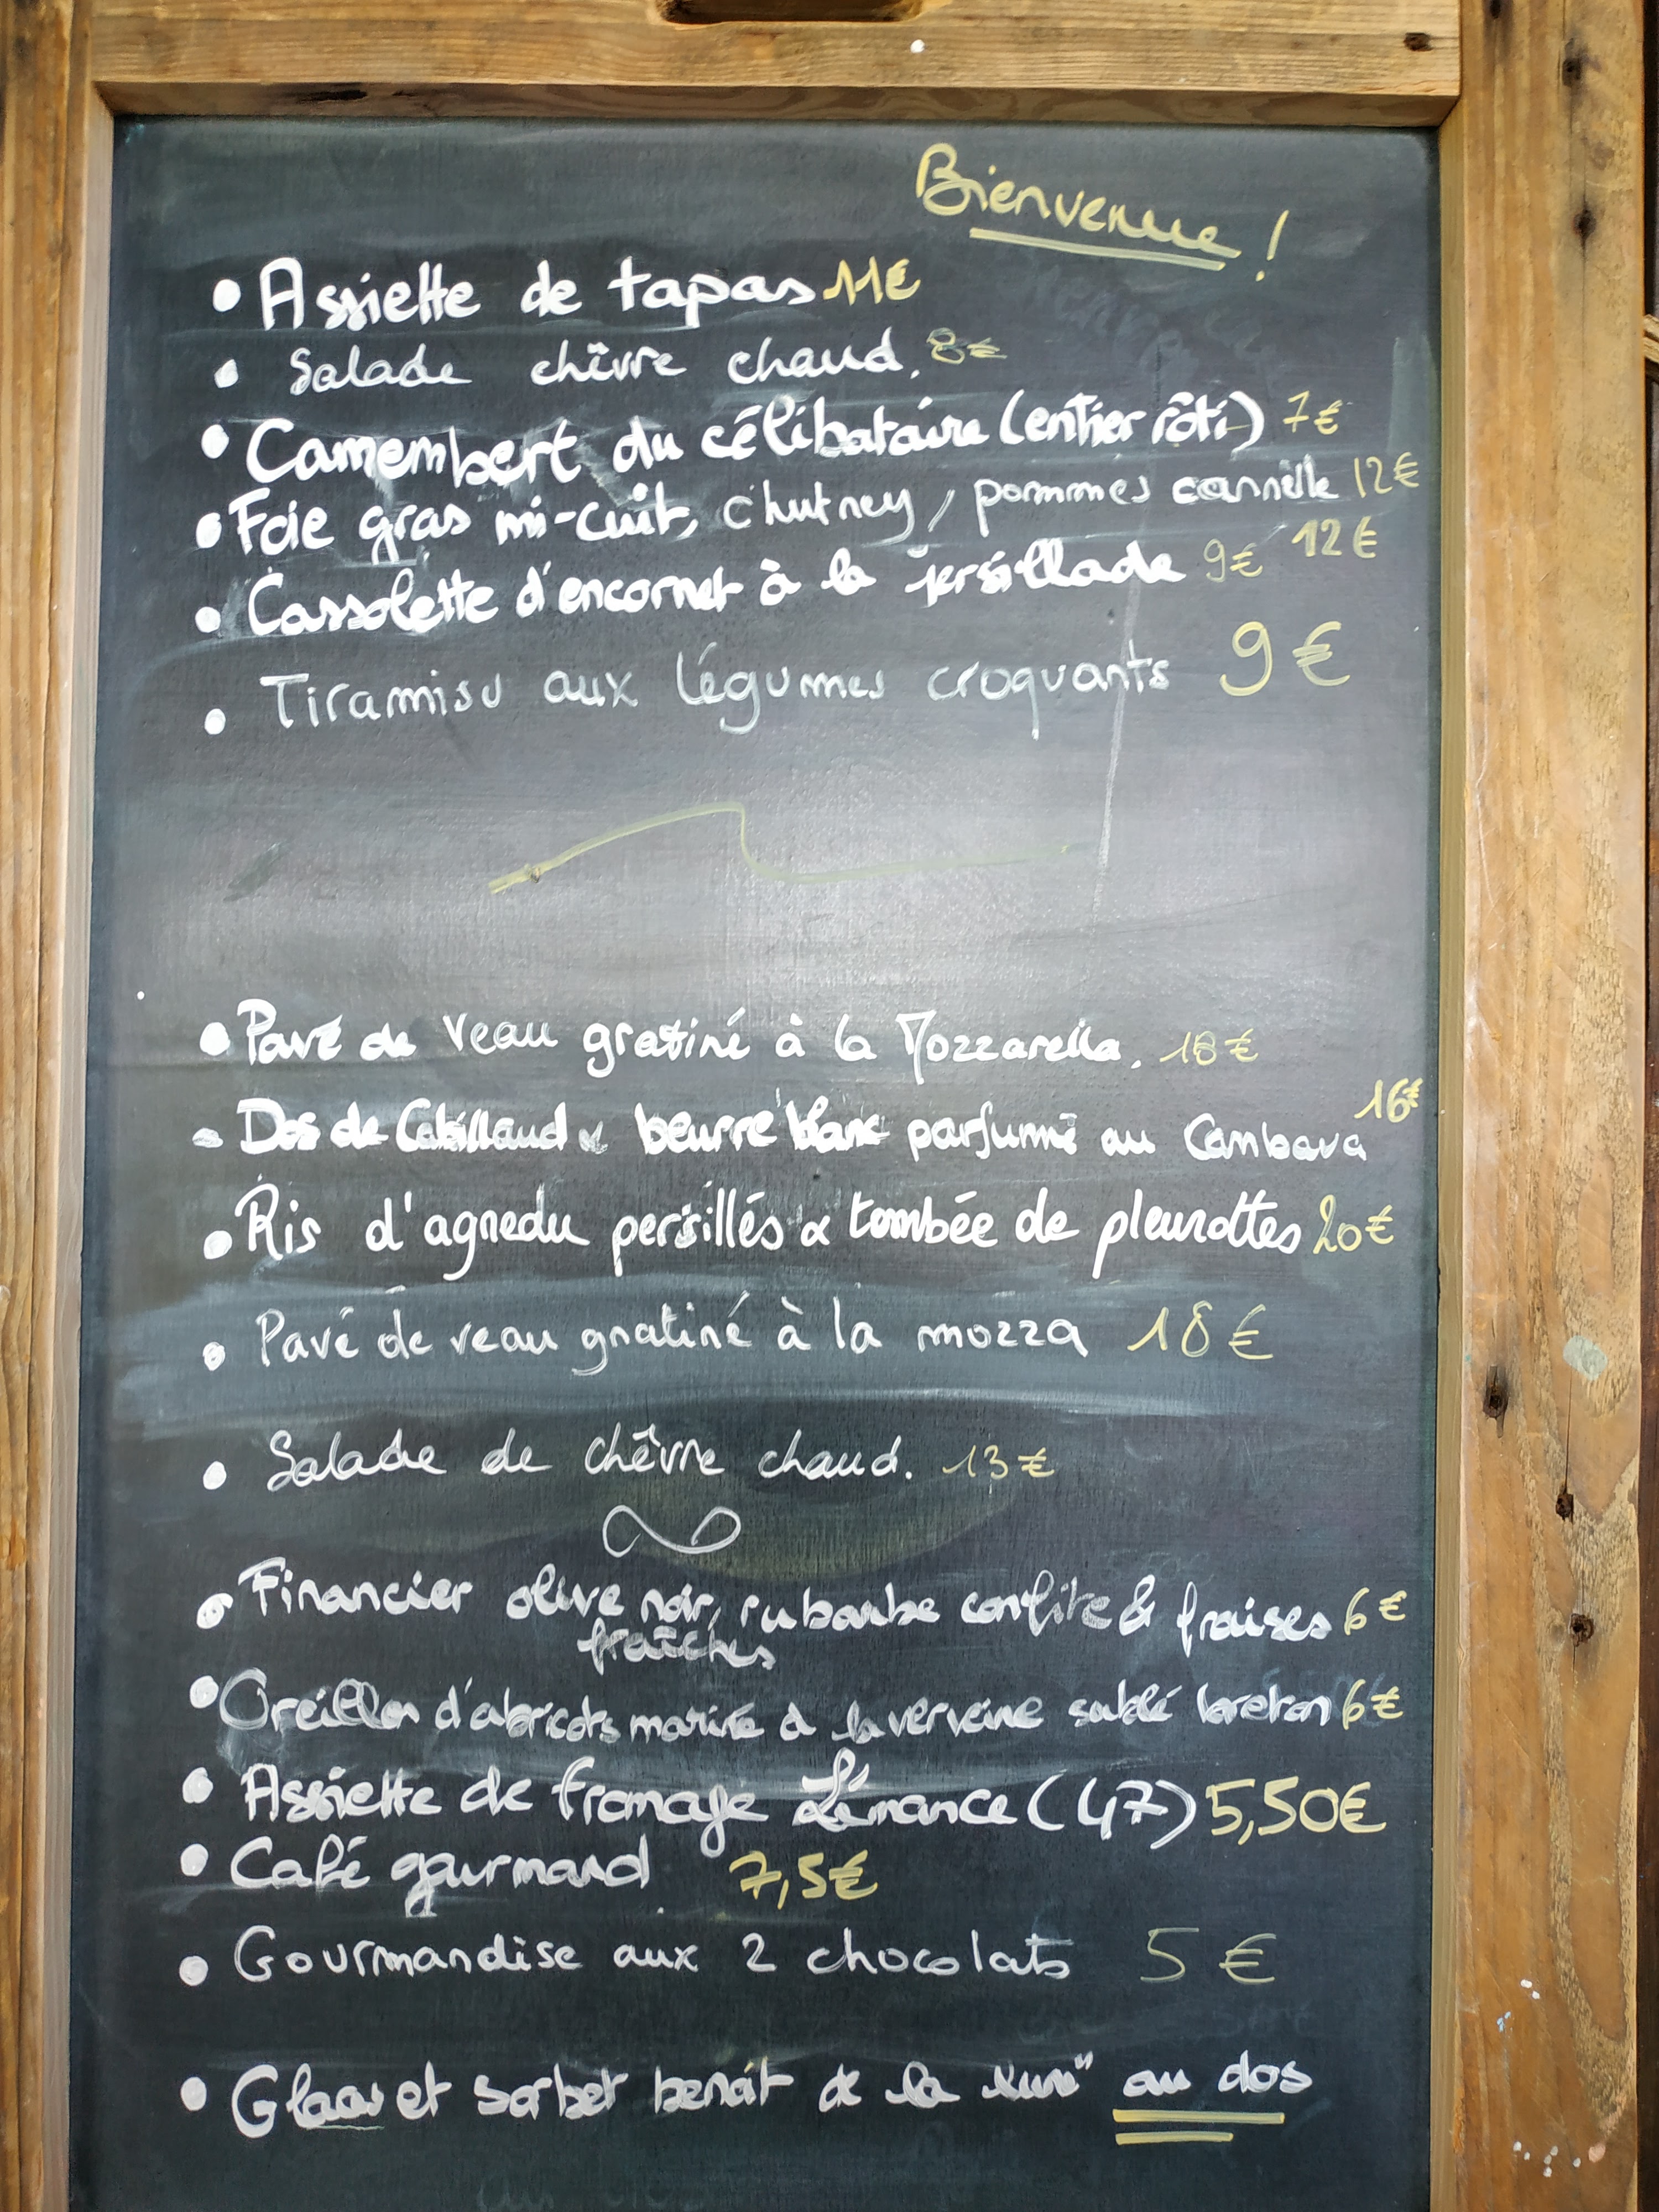 Bienvenue !
• Assiette de tapas 11€
• Salade chèvre chaud. 8€
• Camembert du célibataire (entier rôti) 7€
• Foie gras mi-cuit, chutney, pommes cannelle 12€
• Cassolette d'encornet à la persillade 9€ 12€
• Tiramisu aux légumes croquants 9€
• Pavé de veau gratiné à la Mozzarella. 18€
• Dos de Cabillaud & beurre blanc parfumé au Combava 16€
• Ris d'agneau persillés & tombée de pleurottes 20€
• Pavé de veau gratiné à la mozza 18€
• Salade de chèvre chaud. 13€
• Financier olive noir, rubarbe confite & fraises 6€
fraîches
• Oreillon d'abricots mariné à la verveine sablé breton 6€
• Assiette de fromage Lémance (47) 5,50€
• Café gourmand 7,5€
• Gourmandise aux 2 chocolats 5€
• Glaces et sorbet de la au dos